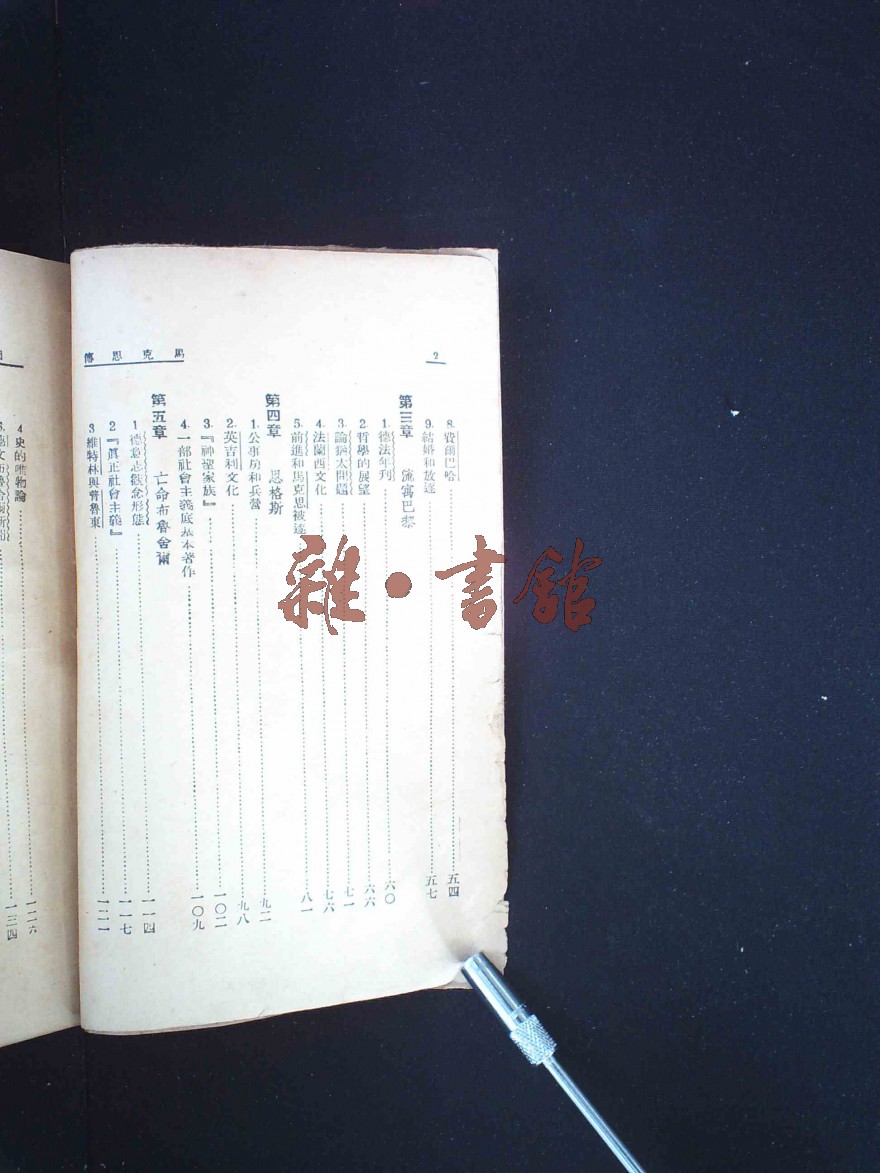 馬克思傳
2
8. 費爾巴哈 五四
9. 結婚和放逐 五七
第三章 流寓巴黎
1. 德法年刋 六〇
2. 哲學的展望 六六
3. 論猶太問題 七一
4. 法蘭西文化 七六
5. 前進和馬克思被逐 八一
第四章 恩格斯
1. 公事房和兵營 九二
2. 英吉利文化 九八
3. 『神聖家族』 一〇二
4. 一部社會主義底基本著作 一〇九
第五章 亡命布魯舍爾
1 德意志觀念形態 一一四
2 『眞正社會主義』 一一七
3 維特林與普魯東 一二一
4 史的唯物論 一二六
一三四
雜·書館